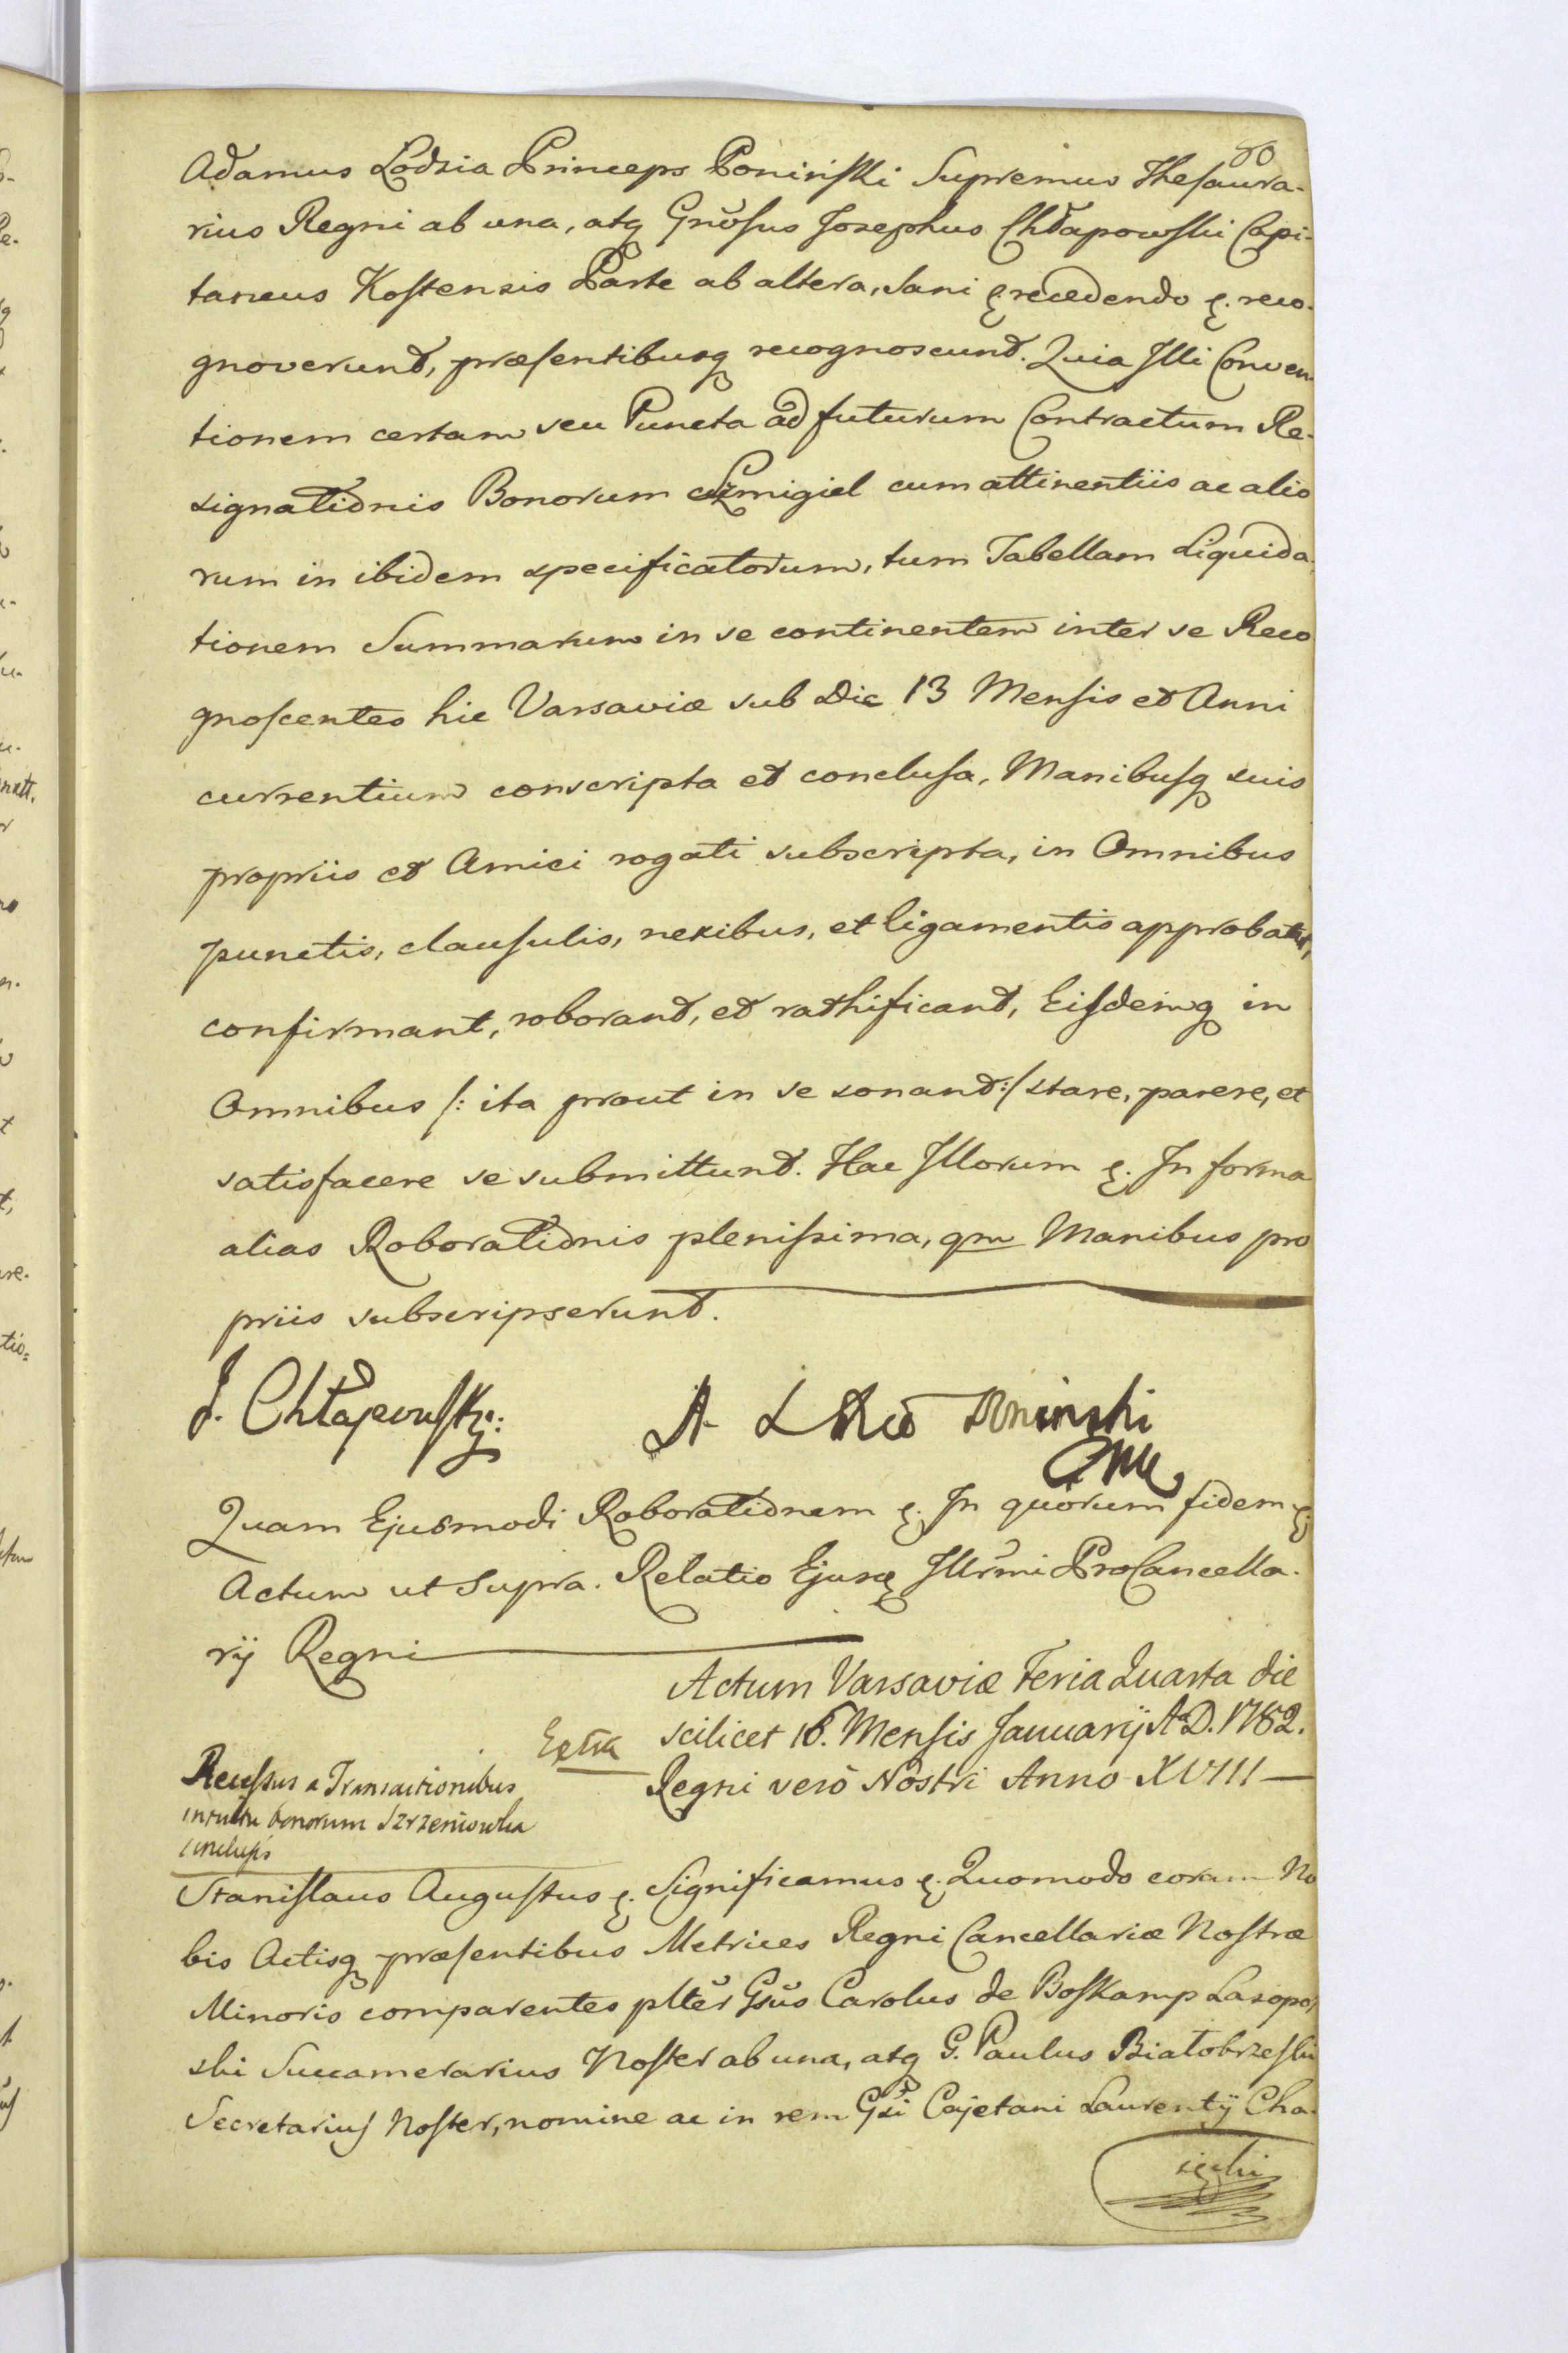 80
Adamus Łodzia Princeps Poniński Supremus Thesaura-
rius Regni ab una, atq Gnosus Josephus Chłapowski Capi-
taneus Kostensis Parte ab altera, sani recedendo recog-
gnoverunt, præsentibusq recognoscunt. Quia Illi Conven-
tionem certam seu Puncta ad futurum Contractum Re-
signationis Bonorum Szmigiel cum attinentiis ac alio
rum in ibidem specificatorum, tum Tabellam Liquida-
tionem Summarum in se continentem inter se Reco
gnoscentes hic Varsaviæ sub Die 13 Mensis et Anni
currentium conscripta et conclusa, Manibusq suis
propriis et Amici rogati subscripta, in Omnibus
punctis, clausulis, nexibus, et ligamentis approbant,
confirmant, roborant, et rathificant, Eisdemq in
Omnibus /: ita prout in se sonant :/ stare, parere, et
satisfacere se submittunt. Hac Illorum In forma
alias Roborationis plenissima, qm Manibus pro
priis subscripserunt.
J. Chłapowski: A Poninski
Quam Ejusmodi Roborationem In quorum fidem
Actum ut Supra. Relatio Ejusq Illrmi ProCancella-
rij Regni
Actum Varsaviæ Feria Quarta die
scilicet 16. Mensis Januarij A. D. 1782.
Regni verò Nostri Anno XVIII
Recessus a Transactionibus
intuitu bonorum
conclusis
Stanislaus Augustus Significamus Quomodo coram No
bis Actisq præsentibus Metrices Regni Cancellariæ Nostræ
Minoris comparentes plter Gsus Carolus de Boskamp Lasopol
ski Succamerarius Noster ab una, atq G. Paulus Białobrzeski
Secretarius Noster, nomine ac in rem Gsi Cajetani Laurentij Cha-